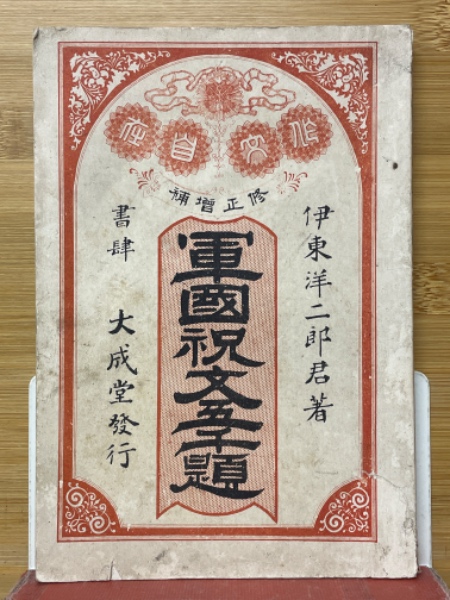 作文自在
修正增補
伊東洋二郎君著
軍國祝文五千題
書肆 大成堂發行